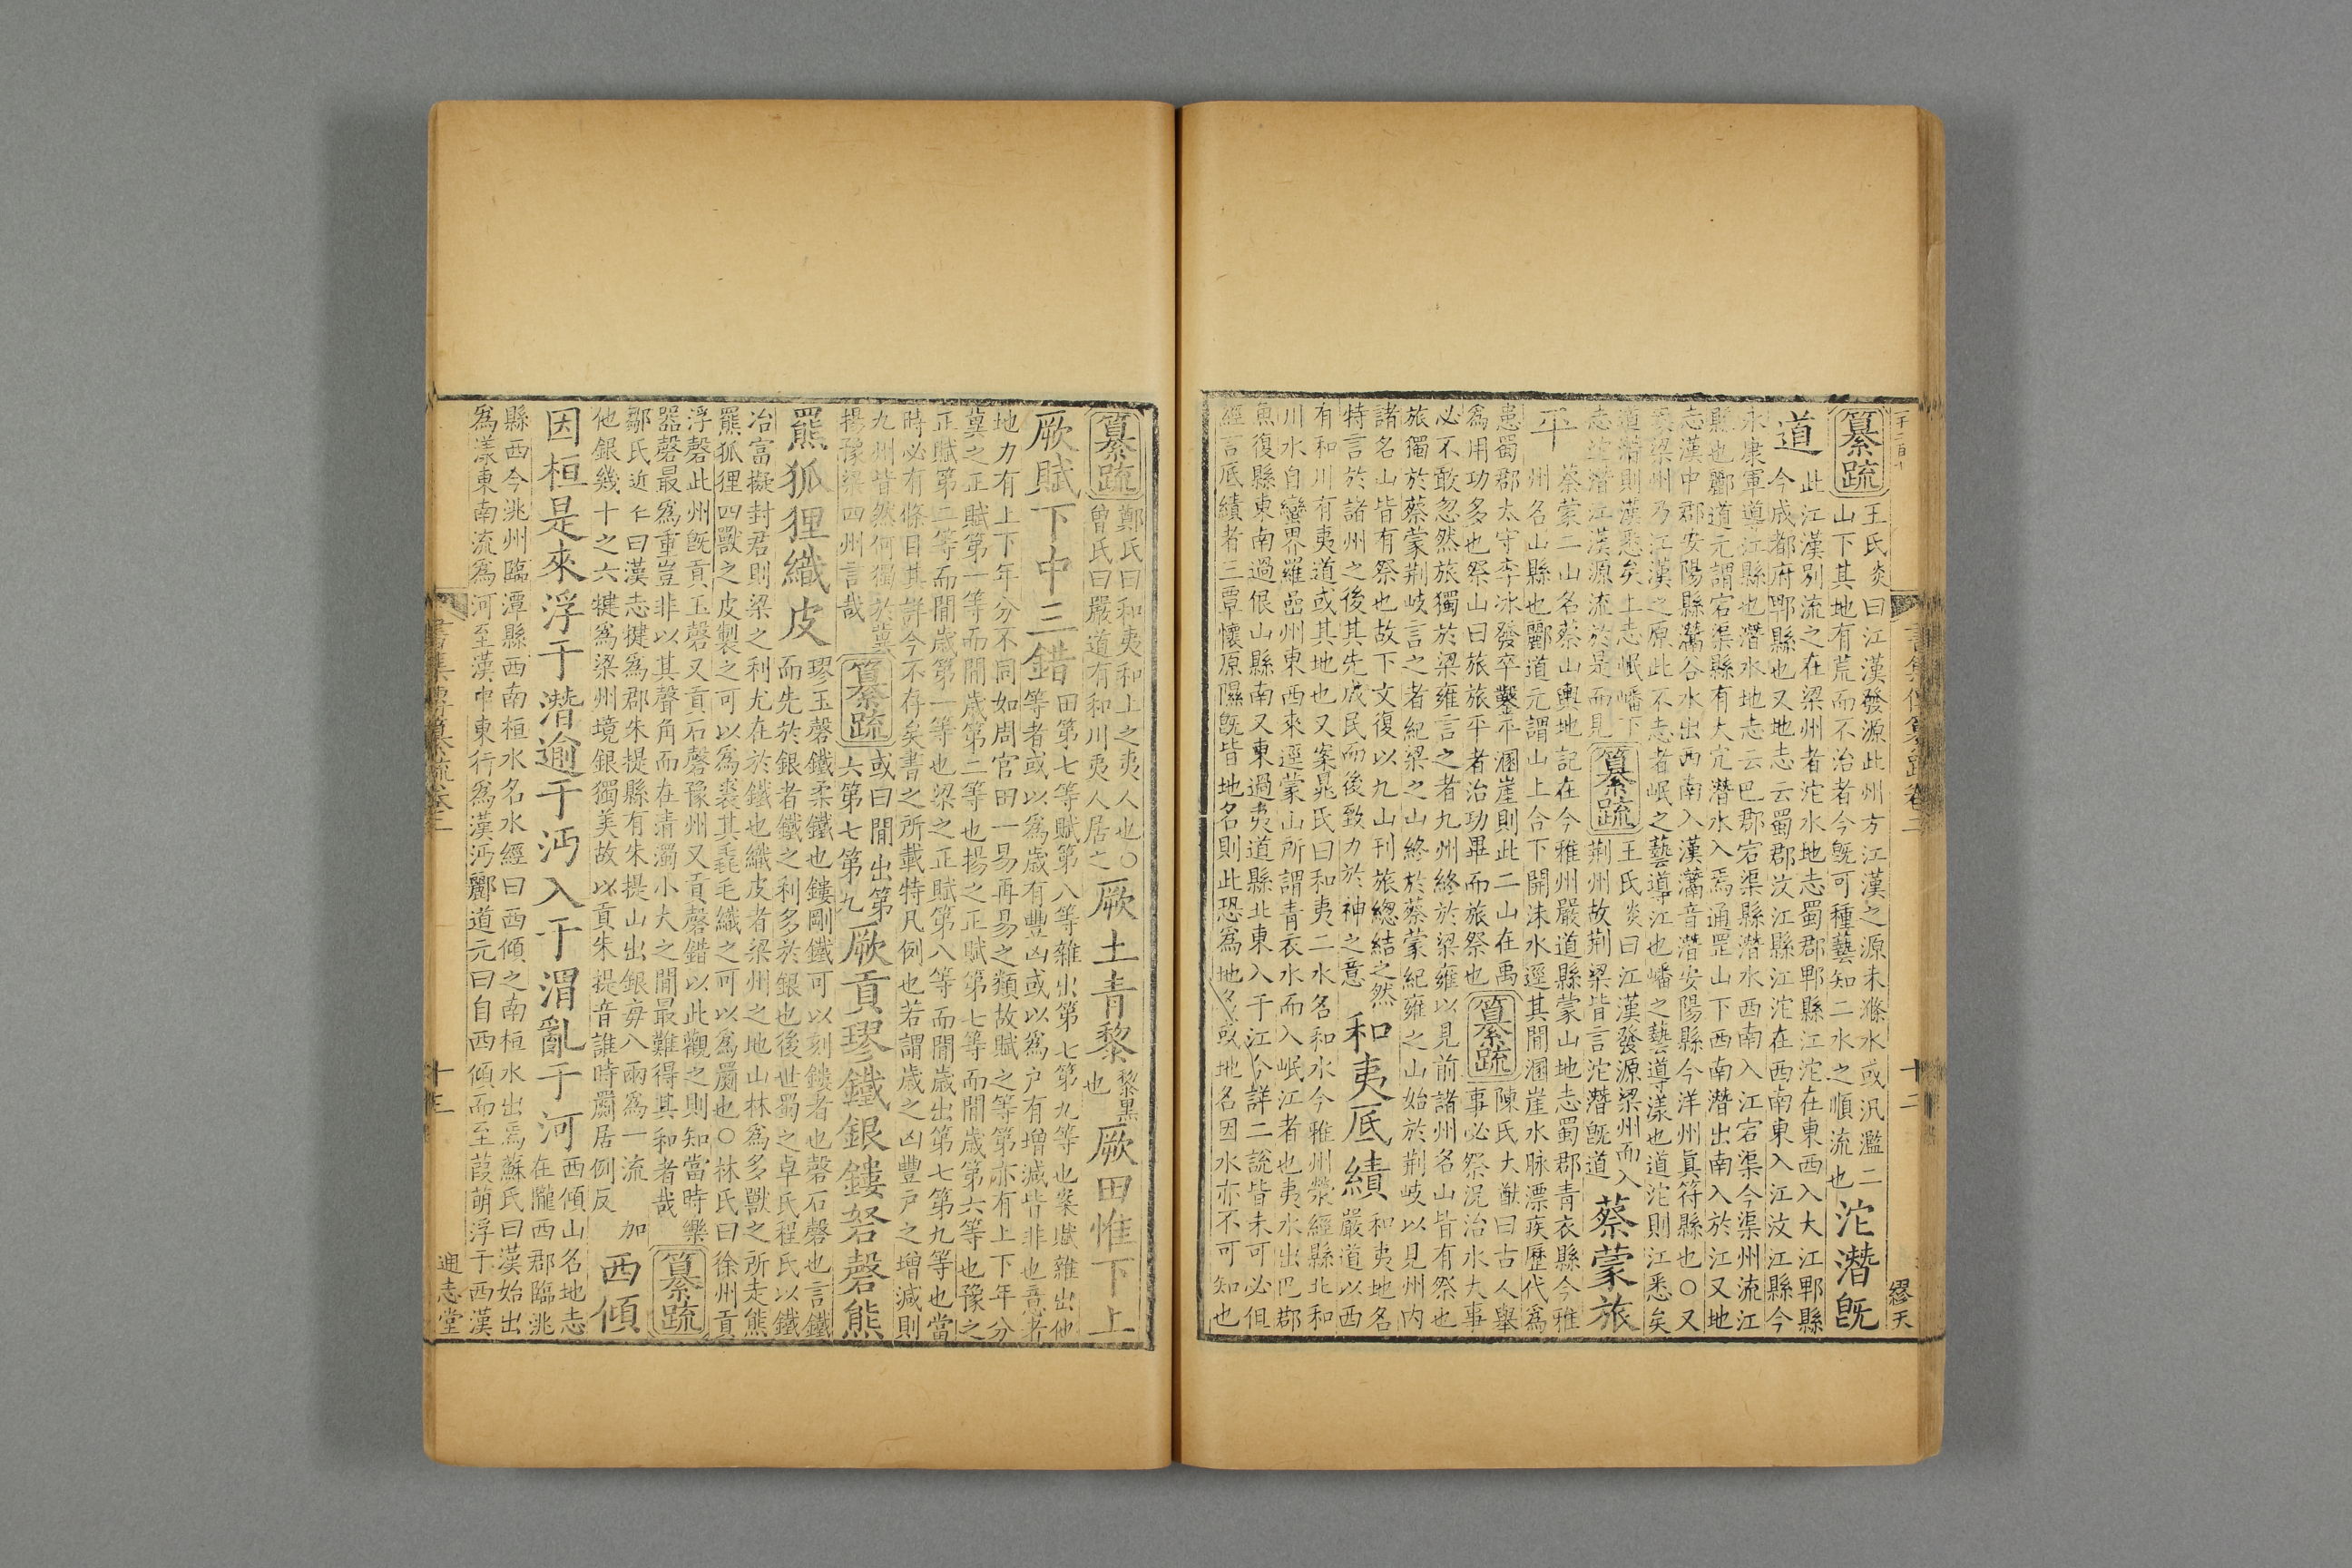 纂疏
王氏炎曰江漢發源此州方江漢之源未滌水或汎濫二
山下其地有荒而不治者今旣可種藝知二水之順流也
沱潛旣
道
此江漢別流之在梁州者沱水地志蜀郡郫縣江沱在東西入大江郫縣
今成都府郫縣也又地志云蜀郡汶江縣江沱在西南東入江汶江縣今
永康軍導江縣也潛水地志云巴郡宕渠縣潛水西南入江宕渠今渠州流江
縣也酈道元謂宕渠縣有大穴潛水入焉通罡山下西南潛出南入於江又地
志漢中郡安陽縣灊谷水出西南入漢灊音潛安陽縣今洋州眞符縣也○又
梁州乃江漢之原此不志者岷之藝導江也嶓之藝導漾也道沱則江悉矣
道潛則漢悉矣上志岷嶓下
志沱潛江漢源流於是而見
纂疏
王氏炎曰江漢發源梁州而入
荆州故荆梁皆言沱潛旣道
蔡蒙旅
平
蔡蒙二山名蔡山輿地記在今雅州嚴道縣蒙山地志蜀郡青衣縣今雅
州名山縣也酈道元謂山上合下開沫水逕其間溷崖水脉漂疾歷代爲
患蜀郡太守李冰發卒鑿平溷崖則此二山在禹
爲用功多也祭山曰旅旅平者治功畢而旅祭也
纂疏
陳氏大猷曰古人舉
事必祭況治水大事
必不敢忽然旅獨於梁雍言之者九州終於梁雍以見前諸州名山皆有祭也
旅獨於蔡蒙荆岐言之者紀梁之山終於蔡蒙紀雍之山始於荆岐以見州內
諸名山皆有祭也故下文復以九山刊旅緫結之然
特言於諸州之後其先成民而後致力於神之意
和夷厎績
和夷地名
嚴道以西
有和川有夷道或其地也又案晁氏曰和夷二水名和水今雅州滎經縣北和
川水自蠻界羅嵒州東西來逕蒙山所謂青衣水而入岷江者也夷水出巴郡
魚復縣東南過佷山縣南又東過夷道縣北東入于江今詳二說皆未可必但
經言厎績者三覃懷原隰旣皆地名則此恐爲地名或地名因水亦不可知也
繆天
十二
纂疏
鄭氏曰和夷和上之夷人也○
曾氏曰嚴道有和川夷人居之
厥土青黎
黎黑
也
厥田惟下上
厥賦下中三錯
田第七等賦第八等雜出第七第九等也案賦雜出他
等者或以爲歲有豐凶或以爲户有增減皆非也意者
地力有上下年分不同如周官田一易再易之類故賦之等第亦有上下年分
冀之正賦第一等而間歲第二等也揚之正賦第七等而間歲第六等也豫之
正賦第二等而間歲第一等也梁之正賦第八等而間歲出第七第九等也當
時必有條目其詳今不存矣書之所載特凡例也若謂歲之凶豐户之增減則
九州皆然何獨於冀
揚豫梁四州言哉
纂疏
或曰間出第
六第七第九
厥貢璆鐵銀鏤砮磬熊
羆狐狸織皮
璆玉磬鐵柔鐵也鏤剛鐵可以刻鏤者也磬石磬也言鐵
而先於銀者鐵之利多於銀也後世蜀之卓氏程氏以鐵
冶富擬封君則梁之利尤在於鐵也織皮者梁州之地山林爲多獸之所走熊
羆狐狸四獸之皮製之可以爲裘其毳毛織之可以爲罽也○林氏曰徐州貢
浮磬此州旣貢玉磬又貢石磬豫州又貢磬錯以此觀之則知當時樂
器磬最爲重豈非以其聲角而在清濁小大之間最難得其和者哉
纂疏
鄒氏近仁曰漢志揵爲郡朱提縣有朱提山出銀每八兩爲一流加
他銀幾十之六揵爲梁州境銀獨美故以貢朱提音誰時罽居例反
西傾
因桓是來浮于潛逾于沔入于渭亂于河
西傾山名地志
在隴西郡臨洮
縣西今洮州臨潭縣西南桓水名水經曰西傾之南桓水出焉蘇氏曰漢始出
爲漾東南流爲沔至漢中東行爲漢沔酈道元曰自西傾而至葭萌浮于西漢
十三
通志堂